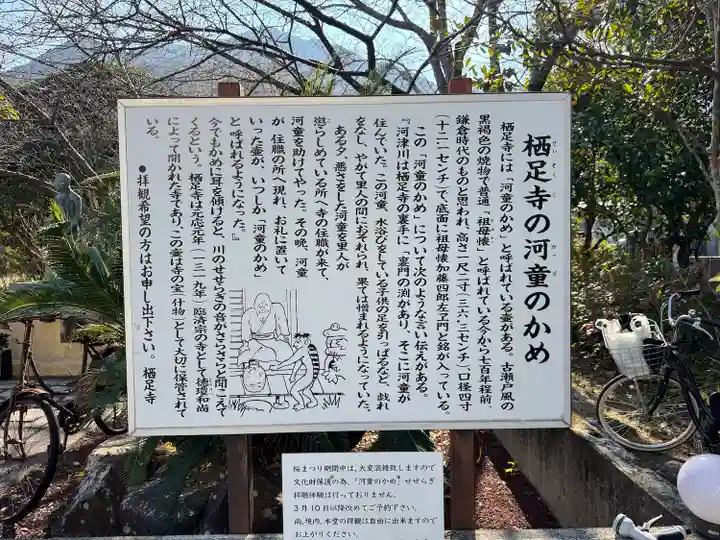 栖足寺の河童のかめ
せいそくじ
かっぱ
栖足寺には、「河童のかめ」と呼ばれている壷がある。古瀬戸風の
黒褐色の焼物で普通「祖母懐」と呼ばれている今から七百年程前
鎌倉時代のものと思われ、高さ一尺二寸(三六・三センチ)口径四寸
(十二・一センチ)で、底面に祖母懐加藤四郎左ヱ門と銘が入っている。
この「河童のかめ」について次のような言い伝えがある。
『河津川は栖足寺の裏手に、裏門の渕があり、そこに河童が
住んでいた。この河童、水浴びをしている子供の足を引っぱるなど、戯れ
をなし、やがて里人の間におそれられ、果ては憎まれるようになっていた。
ある夕、悪さをした河童を里人が
懲らしめている所へ寺の住職が来て、
河童を助けてやった。その晩、河童
が住職の所へ現れ、お礼に置いて
いった壷が、いつしか「河童のかめ」
と呼ばれるようになった。』
今でもかめに耳を傾けると、川のせせらぎの音がさらさらと聞こえて
くるという。栖足寺は元応元年(一三一九年)臨済宗の寺として徳瓊和尚
によって開かれた寺であり、この壷は寺の宝(什物)として大切に保管されて
いる。
●拝観希望の方はお申し出下さい。 栖足寺
桜まつり期間中は、大変混雑致しますので
文化財保護の為、「河童のかめ」せせらぎ
拝聴体験は行っておりません。
3月10日以降改めてご予約下さい。
尚、境内、本堂の拝観は自由に出来ますので
お上がりください。